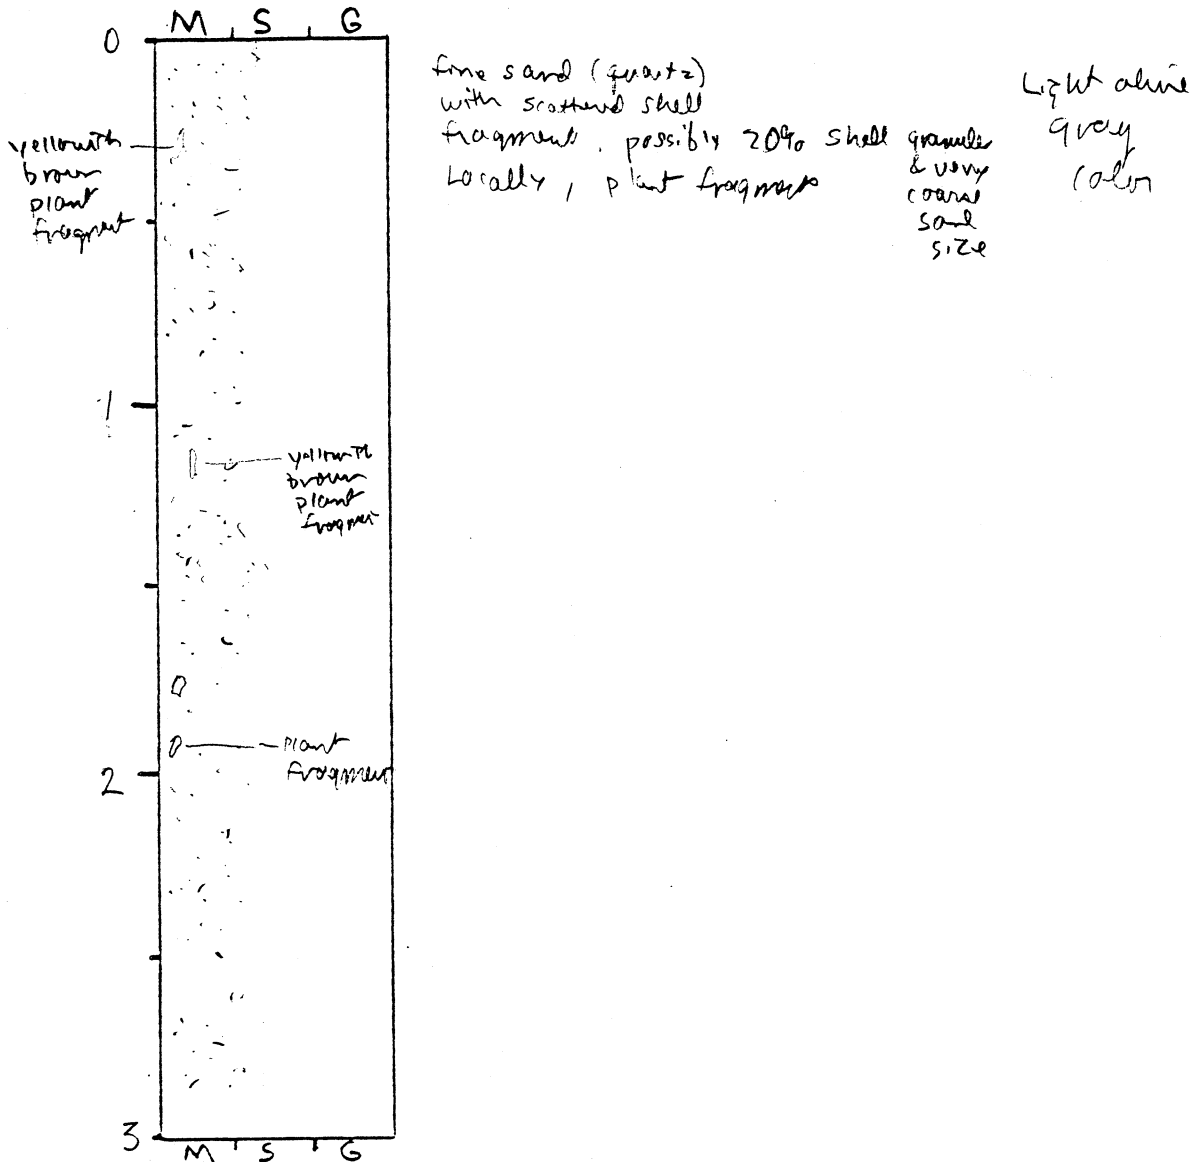 M S G
0
fine sand (quartz)
with scattered shell
fragment, possibly 20% shell granules
& very
coarse
sand
size
Locally, plant fragments
Light olive
gray
color
yellowish
brown
plant
fragment
1
yellowish
brown
plant
fragment
plant
fragment
2
3
M S G